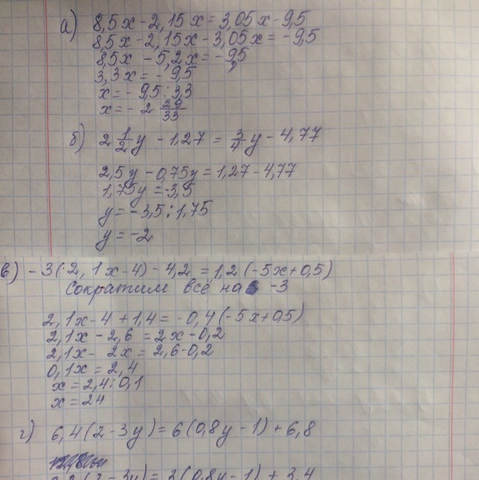 а) 8,5x - 2,15x = 3,05x - 9,5
8,5x - 2,15x - 3,05x = - 9,5
8,5x - 5,2x = - 9,5
3,3x = - 9,5
x = - 9,5 : 3,3
x = - 2 29/33
б) 2 1/2 y - 1,27 = 3/4 y - 4,77
2,5y - 0,75y = 1,27 - 4,77
1,75y = -3,5
y = - 3,5 : 1,75
y = - 2
в) - 3(2,1x - 4) - 4,2 = 1,2(-5x + 0,5)
Сократим всё на -3
2,1x - 4 + 1,4 = - 0,4(-5x + 0,5)
2,1x - 2,6 = 2x - 0,2
2,1x - 2x = 2,6 - 0,2
0,1x = 2,4
x = 2,4 : 0,1
x = 24
г) 6,4(2 - 3y) = 6(0,8y - 1) + 6,8
3,2(2 - 3y) = 3(0,8y - 1) + 3,4